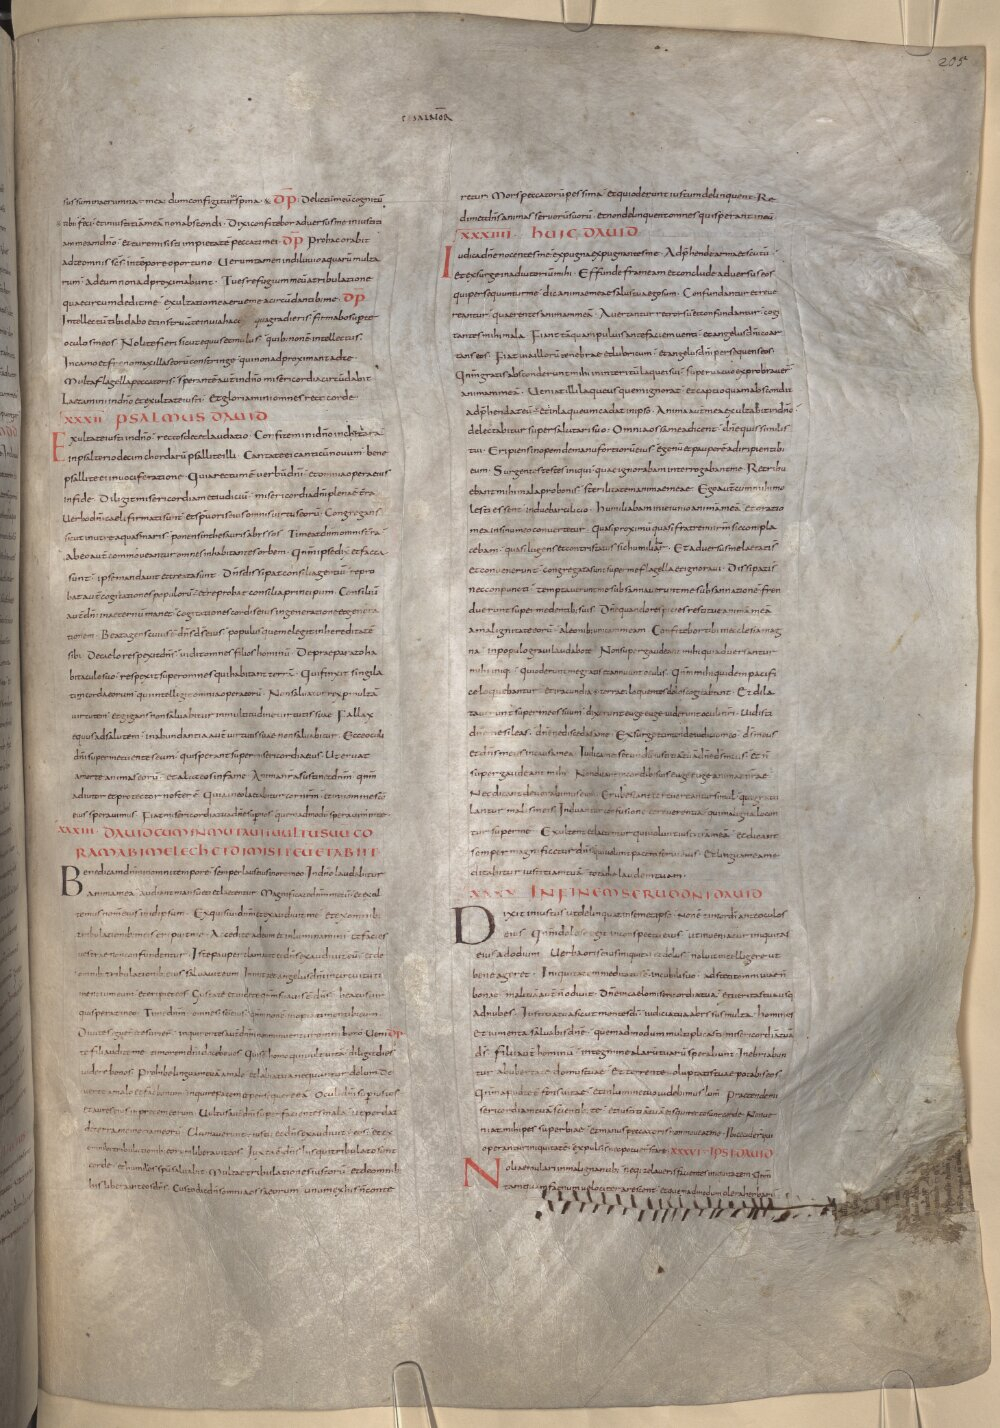 205
PSALMOR̄
sus sum in aerumna mea · dum configitur spina · & DP̄ Delictum meū cognitū
tibi feci · et iniustitiā meā non abscondi · Dixi confitebor adversus me iniustitiā
meā dn̄o · et tu remisisti impietatē peccati mei · DP̄ Pro hac orabit
ad te omnis sc̄s in tēpore oportuno · Verumtamen in diluvio aquarū multa
rum · ad eum non adproximabunt · Tu es refugium meū a tribulatione
quae circumdedit me · exultatio mea erue me a circūdantibus me · DP̄
Intellectū tibi dabo et instruā te in via hac qua gradieris firmabo sup te
oculos meos · Nolite fieri sicut equus et mulus · quibus non ē intellectus ·
In camo et freno maxillas eorū constringe · qui non adproximant ad te ·
Multa flagella peccatoris · sperantē aut̄ in dn̄o misericordia circūdabit
Laetamini in dn̄o et exultate iusti · Et gloriamini omnes recti corde ·
XXXII PSALMUS DAVID
Exultate iusti in dn̄o · rectos decet laudatio · Confitemini dn̄o in cithara
in psalterio decim chordarū psallite illi · Cantate ei canticū novum · bene
psallite in vociferatione · Quia rectum ē verbū dn̄i · et omnia opera eius
in fide · Diligit misericordiam et iudiciū · misericordia dn̄i plena ē t̄ra
Verbo dn̄i caeli firmati sunt · et spū oris eius omnis virtus eorū · Congregans
sicut in utre aquas maris · ponens in thesauris abyssos · Timeat dn̄m omnis t̄ra
ab eo aut̄ commoveantur omnes inhabitantes orbem · Qnm̄ ipse dix et facta
sunt · ipse mandavit et creata sunt · Dn̄s dissipat consilia gentiū · repro
bat aut̄ cogitationes populorū · et reprobat consilia principum · Consiliū
aut̄ dn̄i in aeternū manet · cogitationes cordis eius in generatione et genera
tionem · Beata gens cuius ē dn̄s d̄s eius · populus quem elegit in hereditatē
sibi · De caelo respexit dn̄s · vidit omnes filios hominū · De praeparato ha
bitaculo suo · respexit super omnes qui habitant terrā · Qui finxit singila
tim corda eorum · qui intellegit omnia opera eorū · Non salvatur rex p multā
virtutem · et gigans non salvabitur in multitudine virtutis suae · Fallax
equus ad salutem · in abundantia aut̄ virtutis suae non salvabitur · Ecce oculi
dn̄i super metuentes eum · qui sperant super misericordia eius · Ut eruat
a morte animas eorū · et alat eos in fame · Anima nra sustinet dn̄m · qnm̄
adiutor et protector noster ē · Quia in eo laetabitur cor nrm̄ · et in nomine sc̄o
eius speravimus · Fiat misericordia tua dn̄e sup nos · quemadmodum speravimus in te
XXXIII · DAVID CUM INMUTAVIT VULTUM SUUM CO
RAM ABIMELECH ET DIMISIT EU ET ABIIT
Benedicam dn̄m in omni tempore · semper laus eius in ore meo · In dn̄o laudabitur
anima mea · audiant mansueti et laetentur · Magnificate dn̄m mecū · et exal
temus nomen eius in idipsum · Exquisivi dn̄m et exaudivit me · et ex omnibus
tribulationibus meis eripuit me · Accedite ad eum et inluminamini · et facies
vestrae non confundentur · Iste pauper clamavit et dn̄s exaudivit eū · et de
omnib; tribulationib; eius salvavit eum · Inmittet angelus dn̄i in circuitu ti
mentium eum · et eripiet eos · Gustate et videte qnm̄ suavis ē dn̄s · beatus vir
qui sperat in eo · Timete dn̄m omnes sc̄i eius · qnm̄ non ē inopia timentibus eum
Divites eguerunt et esurier̄ · inquirentes aut̄ dn̄m non minuentur omni bono Veni DP̄
te filii audite me · timorem dn̄i docebo vos · Quis ē homo qui vult vitā · diligit dies
videre bonos · Prohibe linguam tuā a malo · et labia tua ne loquantur dolum · De
verte a malo et fac bonum · inquire pacem et persequere eā · Oculi dn̄i sup iustos
et aures eius in preces eorum · Vultus aut̄ dn̄i super facientes mala · ut perdat
de terra memoriam eorū · Clamaverunt iusti et dn̄s exaudivit eos · et ex
omnib; tribulationib; eorum liberavit eos · Iuxta ē dn̄s his qui tribulato sunt
corde · et humiles spū salvabit · Multae tribulationes iustorū · et de omnib;
his liberavit eos dn̄s · Custodit dn̄s omnia ossa eorum · unum ex his n̄ conte
retur · Mors peccatorū pessima · et qui oderunt iustum delinquent · Re
dimet dn̄s animas servorū suorū · et non delinquent omnes qui sperant in eū
XXXIIII · HUIC DAVID
Iudica dn̄e nocentes me · expugna expugnantes me · Adp̄hende arma et scutū ·
et exsurge in adiutoriū mihi · Effunde frameam et conclude adversus eos
qui persequuntur me · dic animae meae salus tua ego sum · Confundantur et reve
reantur · quaerentes animam meā · Avertantur retrorsū et confundantur · cogi
tantes mihi mala · Fiant tāquam pulvis ante faciem venti · et angelus dn̄i coar
tans eos · Fiat via illorū tenebrae et lubricum · et angelus dn̄i persequens eos ·
Qnm̄ gratis absconderunt mihi interitū laquei sui · supervacue exprobraver̄
animam meā · Veniat illi laqueus quem ignorat · et captio quam abscondit
adp̄hendat eū · et in laqueum cadat in ipso · Anima aut̄ mea exultabit in dn̄o ·
delectabitur super salutari suo · Omnia ossa mea dicent · dn̄e quis similis
tui · Eripiens inopem de manu fortiorū eius · egenū et pauperē a diripientib;
eum · Surgentes testes iniqui · quae ignorabam interrogabant me · Retribu
ebant mihi mala pro bonis · sterilitatem animae meae · Ego aut̄ cum mihi mo
lesti essent · induebar cilicio · Humiliabam in ieiunio animā meā · et oratio
mea in sinu meo convertetur · Quasi proximū quasi fratrem nrm̄ sic conpla
cebam · quasi lugens et contristatus sic humiliabar · Et adversus me laetati s̄t
et convenerunt · congregata sunt super me flagella et ignoravi · Dissipati s̄t
nec conpuncti · temptaverunt me subsannaverunt me subsannatione · fren
duerunt super me dentibus suis · Dn̄e quando respicies restitue animā meā
a malignitate eorū · a leonibus unicam meam · Confitebor tibi in ecclesia mag
na · in populo gravi laudabo te · Non supergaudeant mihi qui adversantur
mihi iniq · qui oderunt me gratis et annuunt oculis · Qnm̄ mihi quidem pacifi
ce loquebantur · et in iracundia terrae loquentes dolos cogitabant · Et dila
taverunt super me os suum · dixerunt euge euge viderunt oculi nri · Vidisti
dn̄e ne sileas · dn̄e ne discedas a me · Exsurge et intende iudicio meo · d̄s meus
et dn̄s meus in causa mea · Iudica me secundū iustitiā tuā dn̄e d̄s meus · et n̄
supergaudeant mihi · Non dicant in cordibus suis euge euge animae nrae ·
Nec dicant devoravimus eum · Erubescant et revereantur simul · qui gratu
lantur malis meis · Induantur confusione et reverentia · qui magna locun
tur super me · Exultent et laetentur qui volunt iustitiā meā · et dicant
semper magnificetur dn̄s · qui volunt pacem servi eius · Et lingua mea me
ditabitur iustitiam tuā · tota die laudem tuam ·
XXXV · IN FINEM SERVO DNI DAVID
Dixit iniustus ut delinquat in semetipso · non ē timor dī ante oculos
eius · Qnm̄ dolose egit in conspectu eius · ut inveniatur iniquitas
eius ad odium · Verba oris eius iniquitas et dolus · noluit intellegere ut
bene ageret · Iniquitatem meditatus ē in cubili suo · adstetit omni viae n̄
bonae · malitiā aut̄ n̄ odivit · Dn̄e in caelo misericordia tua · et veritas tua usq;
ad nubes · Iustitia tua sicut montes d̄i · iudicia tua abyssus multa · Homines
et iumenta salvabis dn̄e · quemadmodum multiplicasti misericordiā tuā
d̄s · Filii aut̄ hominū · in tegmine alarū tuarū sperabunt · Inebriabun
tur ab ubertate domus tuae · et torrente voluptatis tuae potabis eos
Qnm̄ apud te ē fons vitae · et in lumine tuo videbimus lum̄ · Praetende mi
sericordiam tuā scientib; te · et iustitiā tuā eis qui recto sunt corde · Non ve
niat mihi pes superbiae · et manus peccatoris non moveat me · Ibi ceciderunt qui
operantur iniquitatē · expulsi s̄t nec potuer̄ stare · XXXVI · IPSI DAVID
Noli aemulari in malignantib; · neq; zelaveris facientes iniquitatem · Qnm̄
tamquam faenum velociter arescent · et quemadmodum olera herbarū